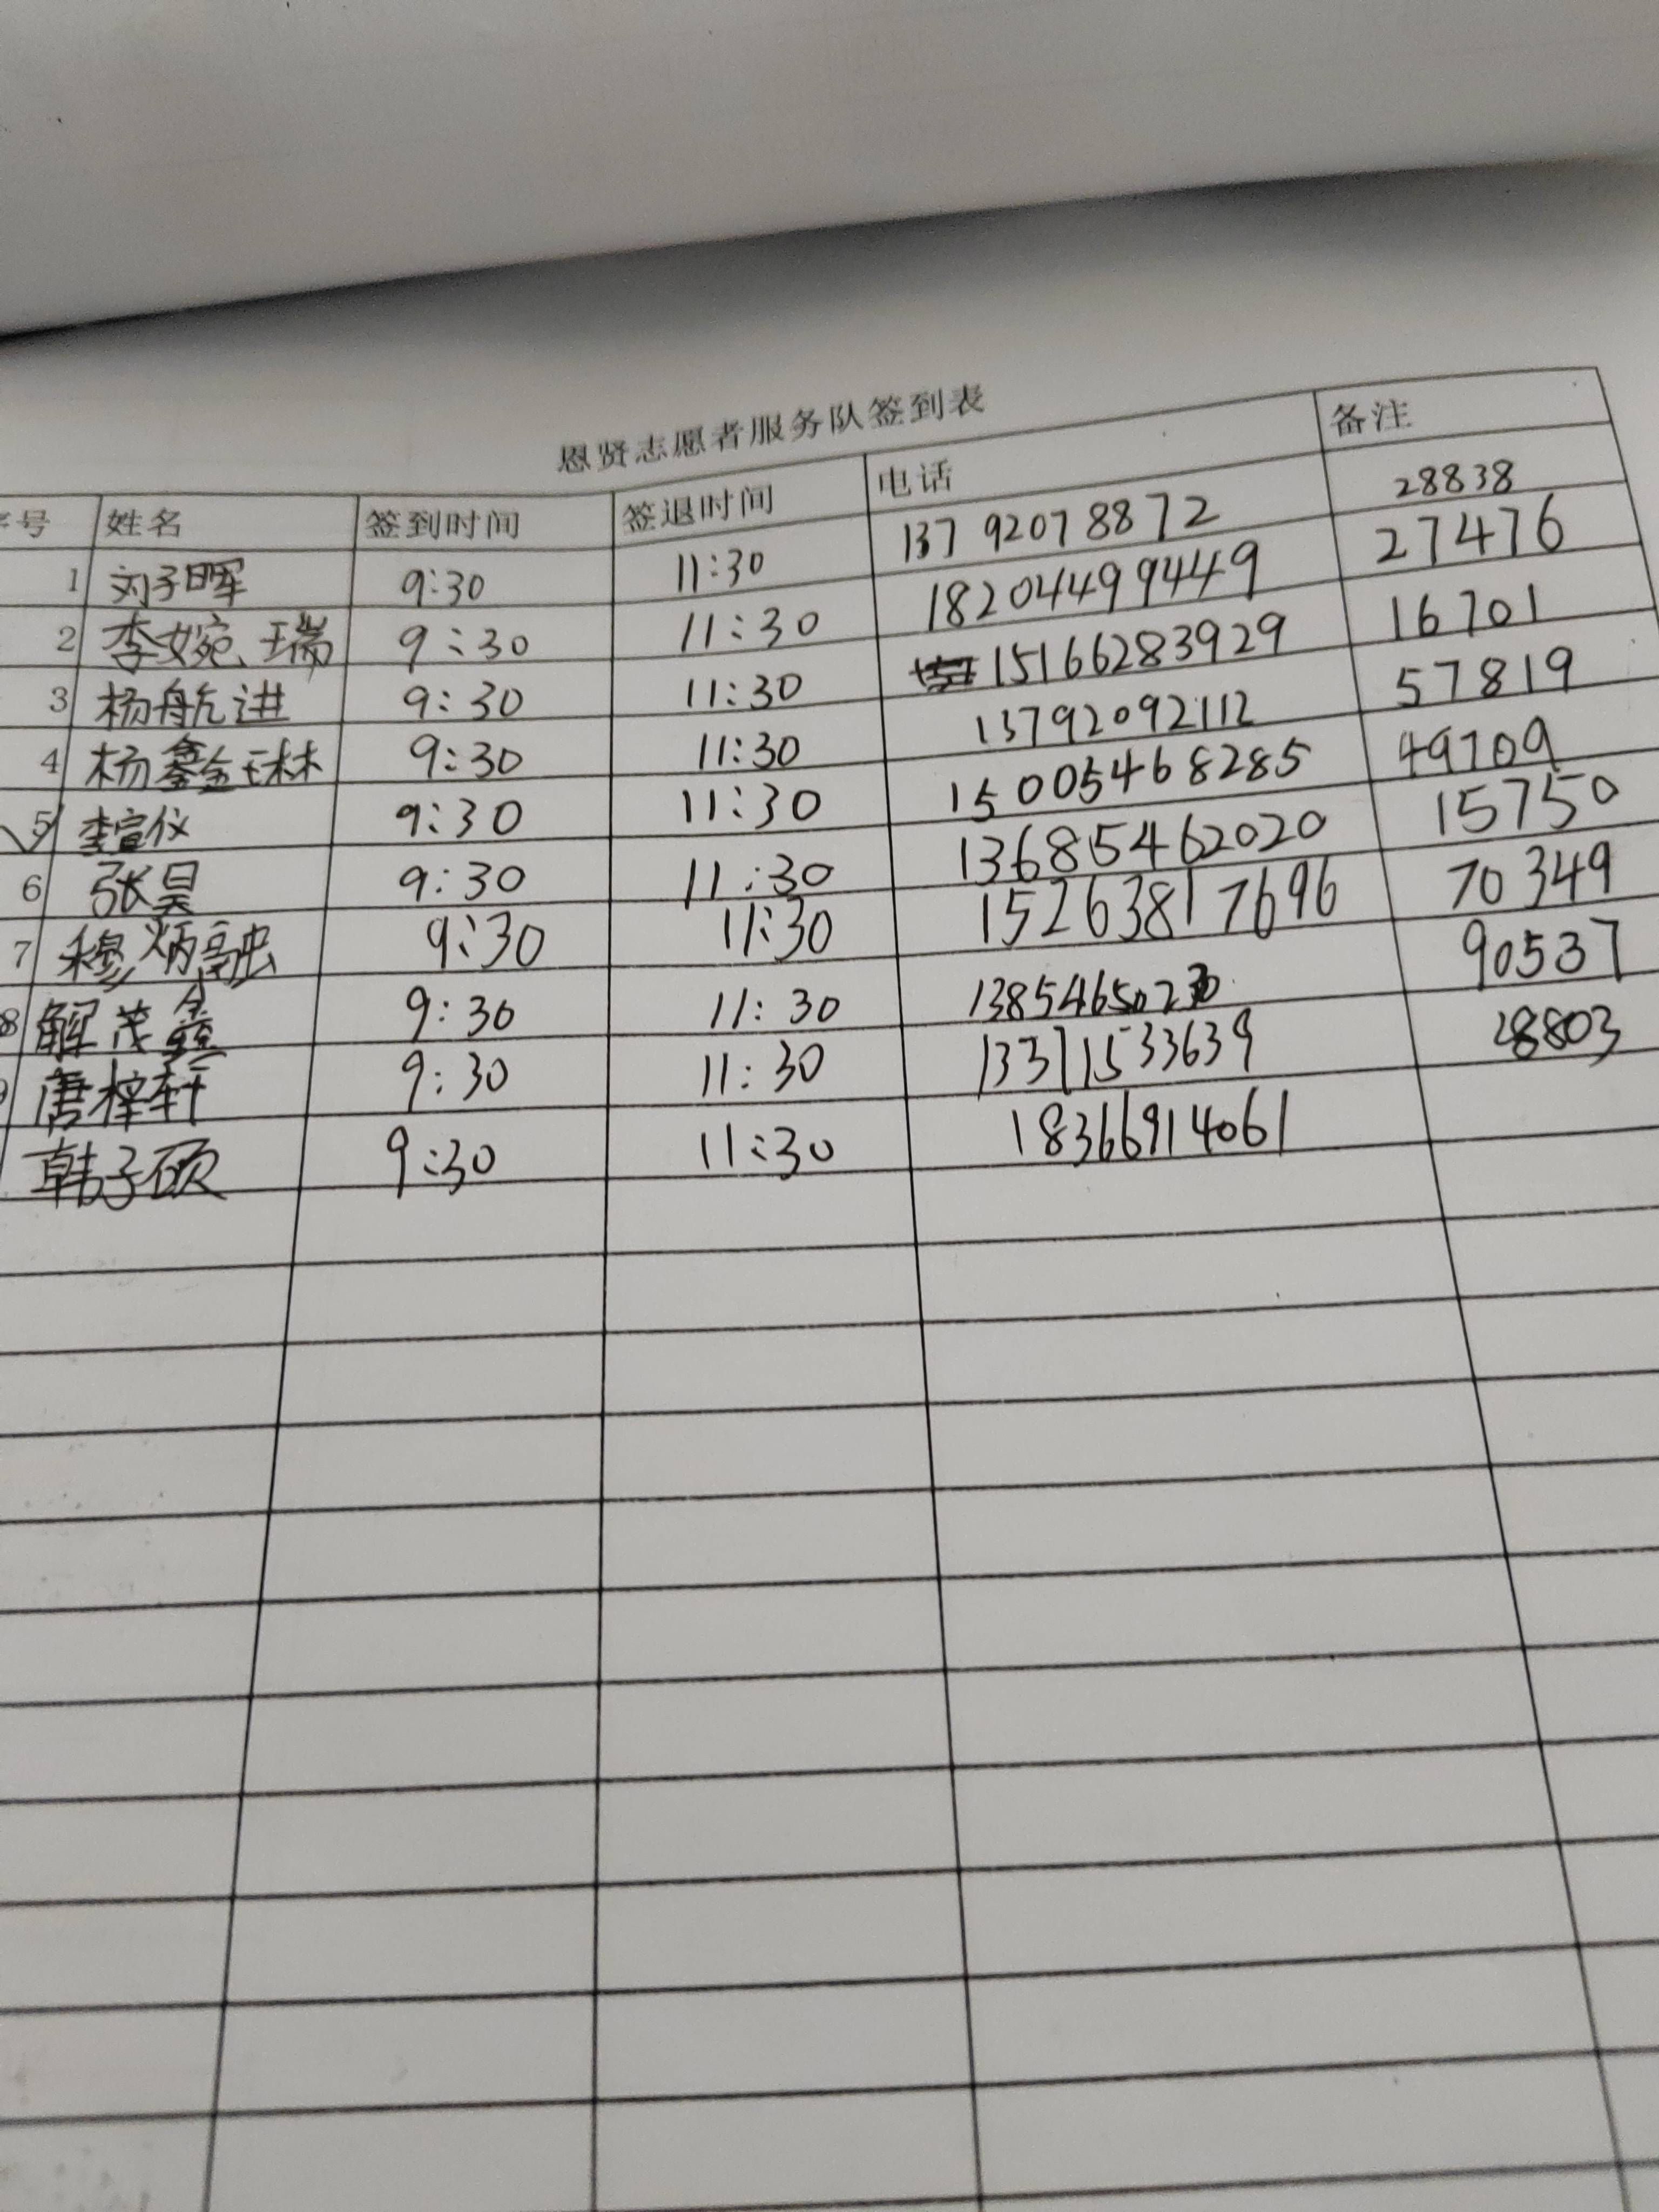 恩贤志愿者服务队签到表
序号 姓名 签到时间 签退时间 电话 备注
1 刘子晖 9:30 11:30 13792078872 28838
2 李婉瑞 9:30 11:30 18204499449 27476
3 杨航进 9:30 11:30 15166283929 16701
4 杨鑫琳 9:30 11:30 13792092112 57819
5 李宣仪 9:30 11:30 15005468285 49709
6 张昊 9:30 11:30 13685462020 15750
7 穆炳融 9:30 11:30 15263817696 70349
8 解茂鑫 9:30 11:30 13854650230 90537
9 唐梓轩 9:30 11:30 13371533639 28803
韩子硕 9:30 11:30 18366914061